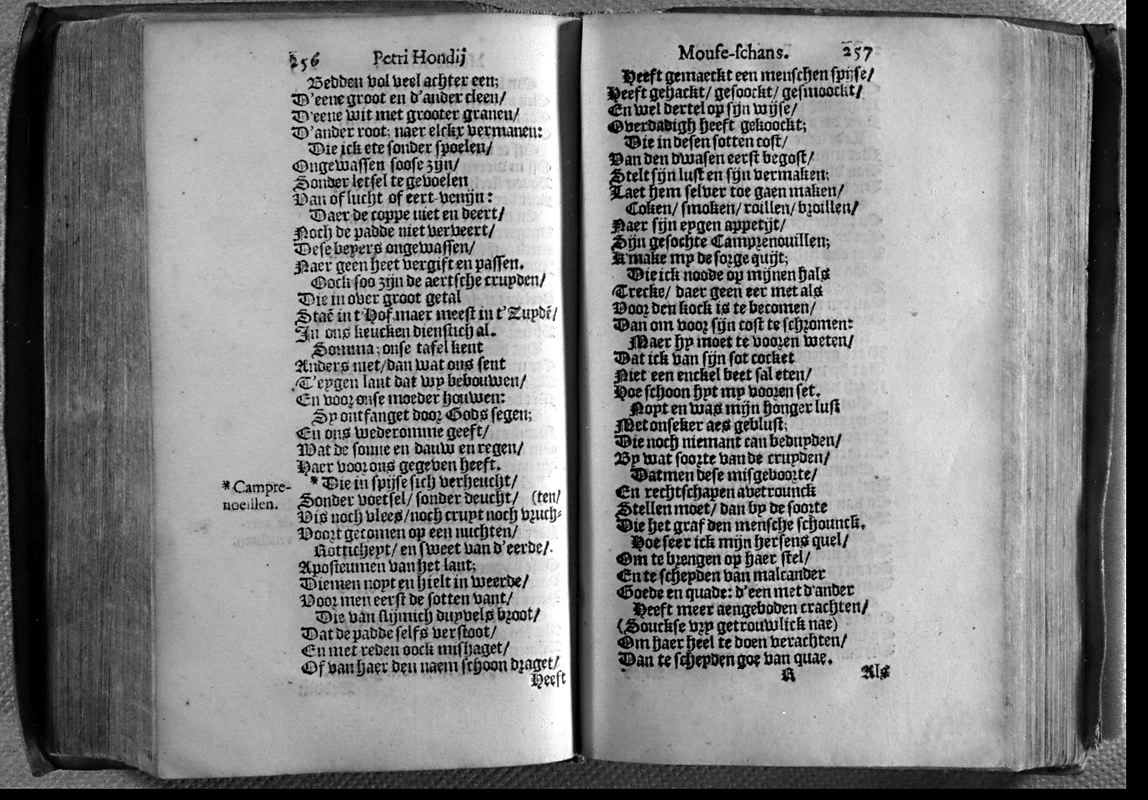 256 Petri Hondij
Bedden vol veel achter een;
D'eene groot en d'ander cleen/
D'eene wit met grooter granen/
D'ander root; naer elckx vermanen:
Die ick ete sonder spoelen/
Ongewassen soose zijn/
Sonder letsel te gevoelen
Van of lucht of eert-venijn:
Daer de coppe niet en deert/
Noch de padde niet verveert/
Dese beyers ongewassen/
Naer geen heet vergift en passen.
Oock soo zijn de aertsche cruyden/
Die in over groot getal
Staē in t'Hof maer meest in t'Zuydē/
In ons keucken dienstich al.
Somma; onse tafel kent
Anders niet/dan wat ons sent
T'eygen lant dat wy bebouwen/
En voor onse moeder houwen:
Sy ontfanget door Gods segen;
En ons wederomme geeft/
Wat de sonne en dauw en regen/
Haer voor ons gegeven heeft.
* Die in spijse sich verheucht/
* Campre-
noeillen.
Sonder voetsel/ sonder deucht/ (ten/
Vis noch vlees/noch cruyt noch vruch-
Voort gecomen op een nuchten/
Rottichept/ en sweet van d'eerde/
Aposteumen van het lant;
Diemen noyt en hielt in weerde/
Voor men eerst de sotten vant/
Die van slijmich duyvels broot/
Dat de padde selfs verstoot/
En met reden oock mishaget/
Of van haer den naem schoon draget/
Heeft
Mouse-schans. 257
Heeft gemaeckt een menschen spijse/
Heeft gehackt/ gesoockt/ gesmoockt/
En wel dertel op sijn wijse/
Overdadigh heeft gekoockt;
Die in desen sotten cost/
Van den dwasen eerst begost/
Stelt sijn lust en sijn vermaken;
Laet hem selver toe gaen maken/
Coken/ smoken/ roillen/ broillen/
Naer sijn eygen appetijt/
Sijn gesochte Camprenouillen;
K'make my de sorge quijt;
Die ick noode op mijnen hals
Trecke/ daer geen eer met als
Voor den kock is te becomen/
Dan om voor sijn cost te schromen:
Maer hy moet te vooren weten/
Dat ick van sijn sot cocket
Niet een enckel beet sal eten/
Hoe schoon hyt my vooren set.
Noyt en was mijn honger lust
Met onseker aes geblust;
Die noch niemant can beduyden/
By wat soorte van de cruyden/
Datmen dese misgeboorte/
En rechtschapen avetrounck
Stellen moet/ dan by de soorte
Die het graf den mensche schounck.
Hoe seer ick mijn hersens quel/
Om te brengen op haer stel/
En te scheyden van malcander
Goede en quade: d'een met d'ander
Heeft meer aengeboden crachten/
(Souckse vry getrouwlick nae)
Om haer heel te doen verachten/
Dan te scheyden goe van quae.
R Als